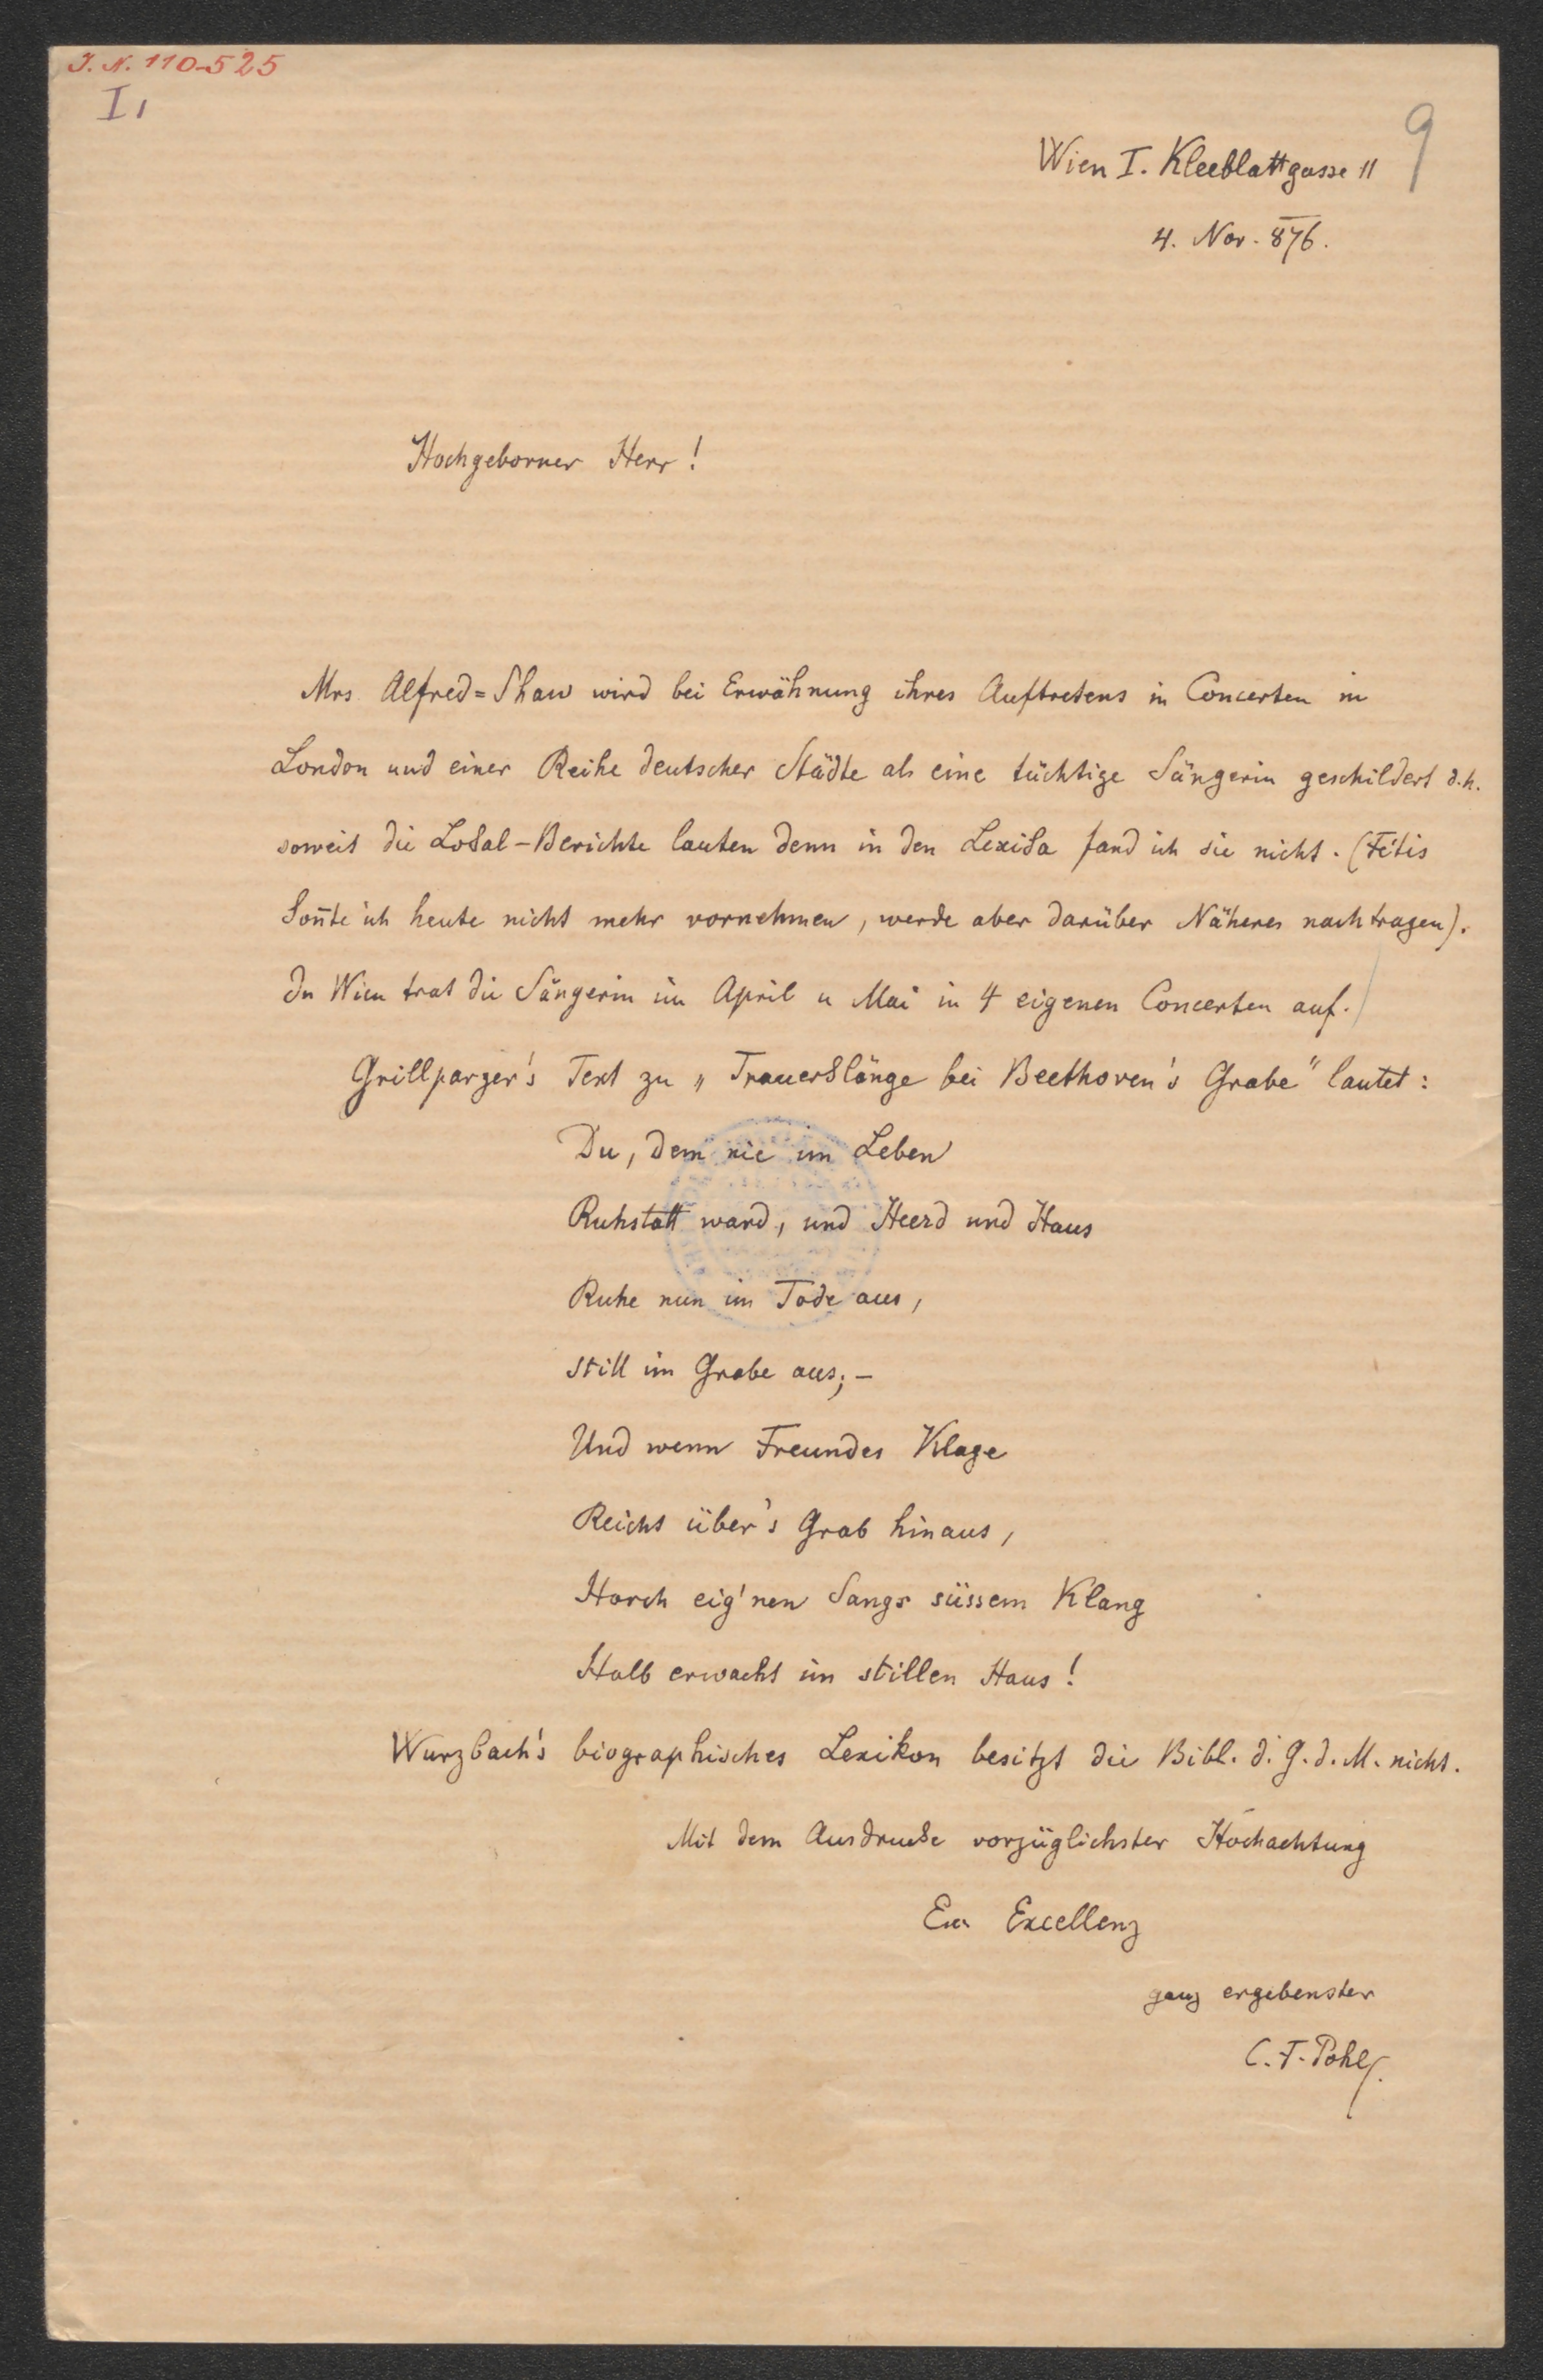 J. N. 110525
I,
9
Wien I. Kleeblattgasse 11
4. Nov. 876.
Hochgeborner Herr!
Mrs. Alfred=Shaw wird bei Erwähnung ihres Auftretens in Concerten in
London und einer Reihe deutscher Städte als eine tüchtige Sängerin geschildert d.h.
soweit die Lokal-Berichte lauten denn in den Lexika fand ich sie nicht. (Fétis
kon̄te ich heute nicht mehr vornehmen, werde aber darüber Näheres nachtragen).
In Wien trat die Sängerin im April u Mai in 4 eigenen Concerten auf.
Grillparzer's Text zu „Trauerklänge bei Beethoven's Grabe" lautet:
Du, dem nie im Leben
Ruhstatt ward, und Heerd und Haus
Ruhe nun im Tode aus,
still im Grabe aus; –
Und wenn Freundes Klage
Reicht über's Grab hinaus,
Horch eig'nen Sangs süssem Klang
Halb erwacht im stillen Haus!
Wurzbach's biographisches Lexikon besitzt die Bibl. d. G. d. M. nicht.
Mit dem Ausdrucke vorzüglichster Hochachtung
Eur Excellenz
ganz ergebenster
C. F. Pohl.